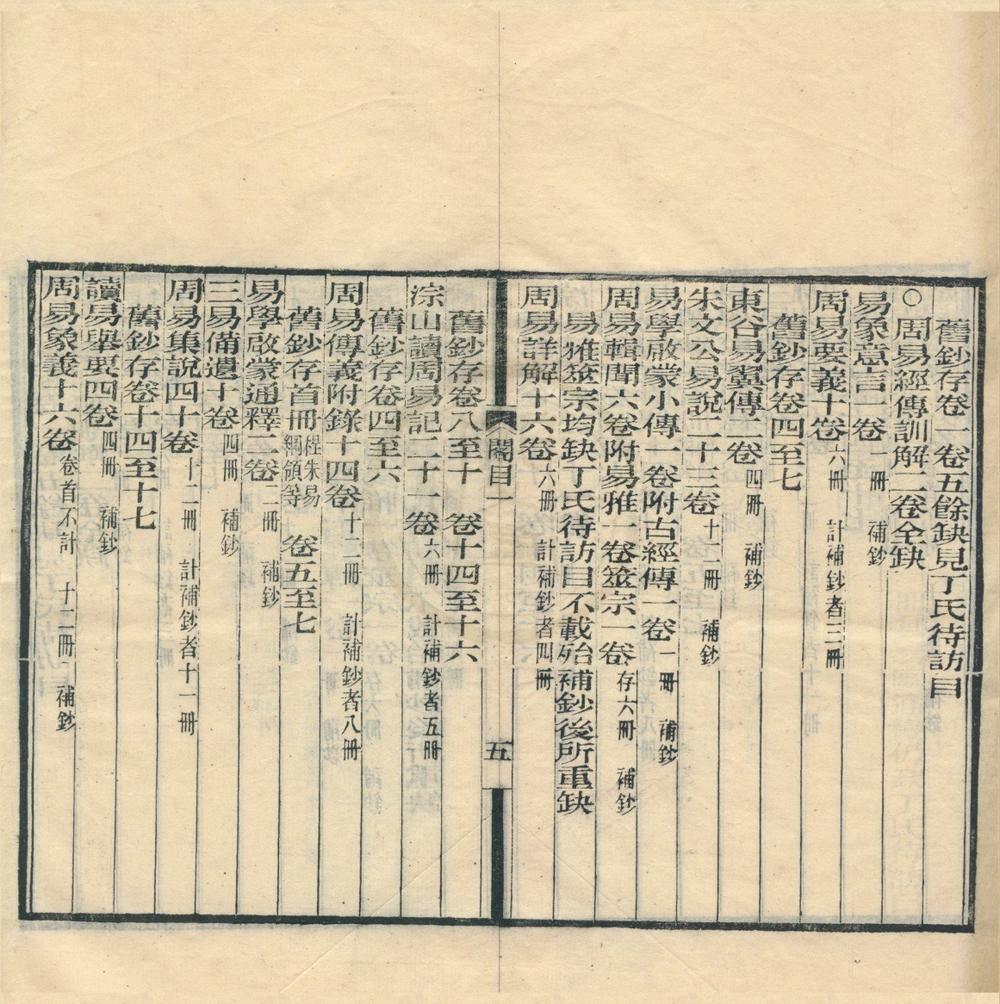 舊鈔存卷一卷五餘缺見丁氏待訪目
○周易經傳訓解二卷全缺
易象意言一卷 一冊 補鈔
周易要義十卷 六冊 計補鈔者三冊
舊鈔存卷四至七
東谷易翼傳二卷 四冊 補鈔
朱文公易說二十三卷 十二冊 補鈔
易學啟蒙小傳一卷附古經傳一卷 一冊 補鈔
周易輯聞六卷附易雅一卷筮宗一卷 存六冊 補鈔
易雅筮宗均缺丁氏待訪目不載殆補鈔後所重缺
周易詳解十六卷 六冊 計補鈔者四冊
閣目一
五
舊鈔存卷八至十 卷十四至十六
淙山讀周易記二十一卷 六冊 計補鈔者五冊
舊鈔存卷四至六
周易傳義附錄十四卷 十二冊 計補鈔者八冊
舊鈔存首冊 程朱易綱領等 卷五至七
易學啟蒙通釋二卷 二冊 補鈔
三易備遺十卷 四冊 補鈔
周易集說四十卷 十二冊 計補鈔者十一冊
舊鈔存卷十四至十七
讀易舉要四卷 四冊 補鈔
周易象義十六卷 卷首不計 十二冊 補鈔